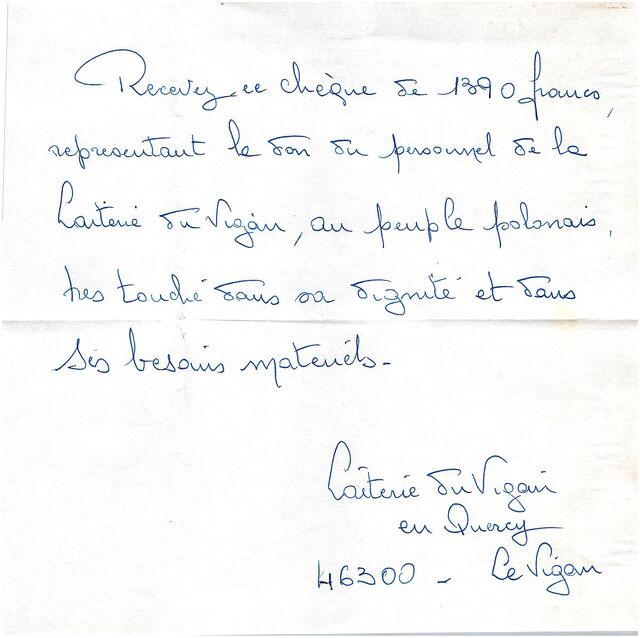 Recevez ce chèque de 1390 francs,
representant le don du personnel de la
Laiterie du Vigan, au peuple polonais,
tres touché dans sa dignité et dans
ses besoins materiels.
Laiterie du Vigan
en Quercy
46300 - Le Vigan